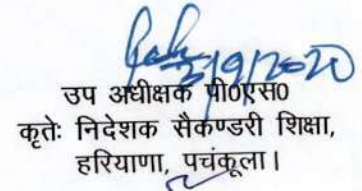 3/9/2020
उप अधीक्षक पी0एस0
कृतेः निदेशक सैकण्डरी शिक्षा,
हरियाणा, पचंकूला।